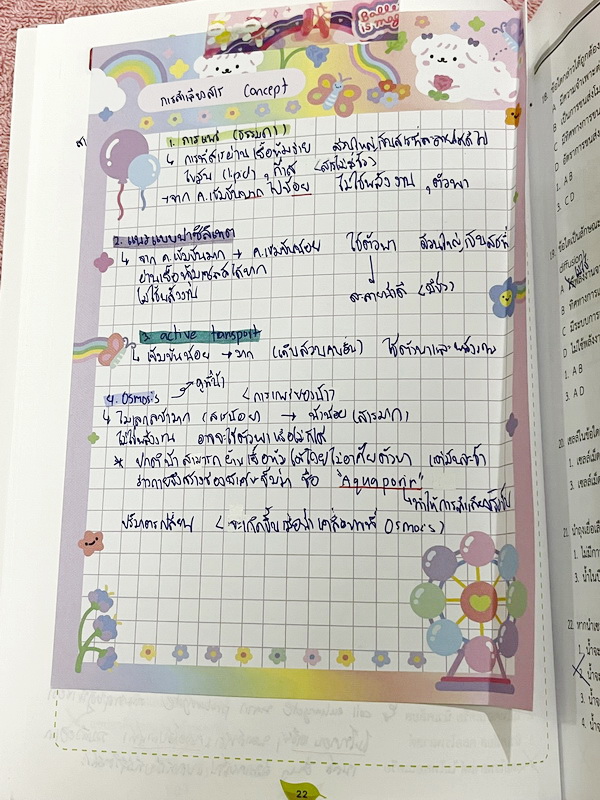 การลำเลียงสาร Concept
1. การแพร่ (ธรรมดา)
↳ การที่สารผ่านเยื่อหุ้มง่าย ส่วนใหญ่เป็นสารที่ละลายได้ใน
ไขมัน (lipid), ก๊าซ (สารไม่มีขั้ว)
→ จาก ค.เข้มข้นมาก ไปน้อย ไม่ใช้พลังงาน, ตัวพา
2. แพร่แบบฟาซิลิเทต
↳ จาก ค.เข้มข้นมาก → ค.เข้มข้นน้อย ใช้ตัวพา ส่วนใหญ่เป็นสารที่
ผ่านเยื่อหุ้มเซลล์ได้ยาก
ไม่ใช้พลังงาน ละลายน้ำดี (มีขั้ว)
3. active transport
↳ เข้มข้นน้อย → มาก ใช้ตัวพาและพลังงาน
4. Osmosis → ดูที่น้ำ
(การแพร่ของน้ำ)
↳ โมเลกุลน้ำมาก (สารน้อย) → น้ำน้อย (สารมาก)
ไม่ใช้พลังงาน อาจจะใช้ตัวพาหรือไม่ก็ได้
* ปกติน้ำสามารถผ่านเยื่อหุ้มได้โดยไม่อาศัยตัวพา แต่มันจะช้า
ร่างกายจึงสร้างช่อง ชื่อ "Aquaporin"
ปริมาตรเปลี่ยน (จะเกิดขึ้นเมื่อน้ำเคลื่อนที่ Osmosis)
22
diffusion)
1. A B
3. C D
1. A B
3. A D